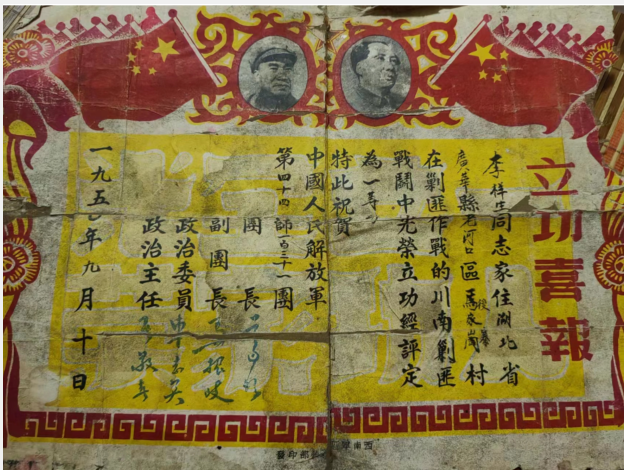 立功喜報
李祥同志家住湖北省
廣華縣老河口區馬家崗村
在剿匪作戰的川南剿匪
戰鬭中光榮立功經評定
為一等功
特此祝賀
中國人民解放軍
第四十四師一百三十一團
團長
副團長
政治委員
政治主任
一九五〇年九月十日
西南軍
部印發